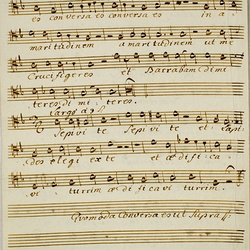 es conversa es conversa es in a
maritudinem amaritudinem ut me
Crucifigeres et Barrabam dimi
teres, di mi teres.
Largo
Sepivi te Sepivi te et lapi
des elegi ex te et ædifica
vi turrim ædificavi turrim.
Quomodo Conversa es ut Supra